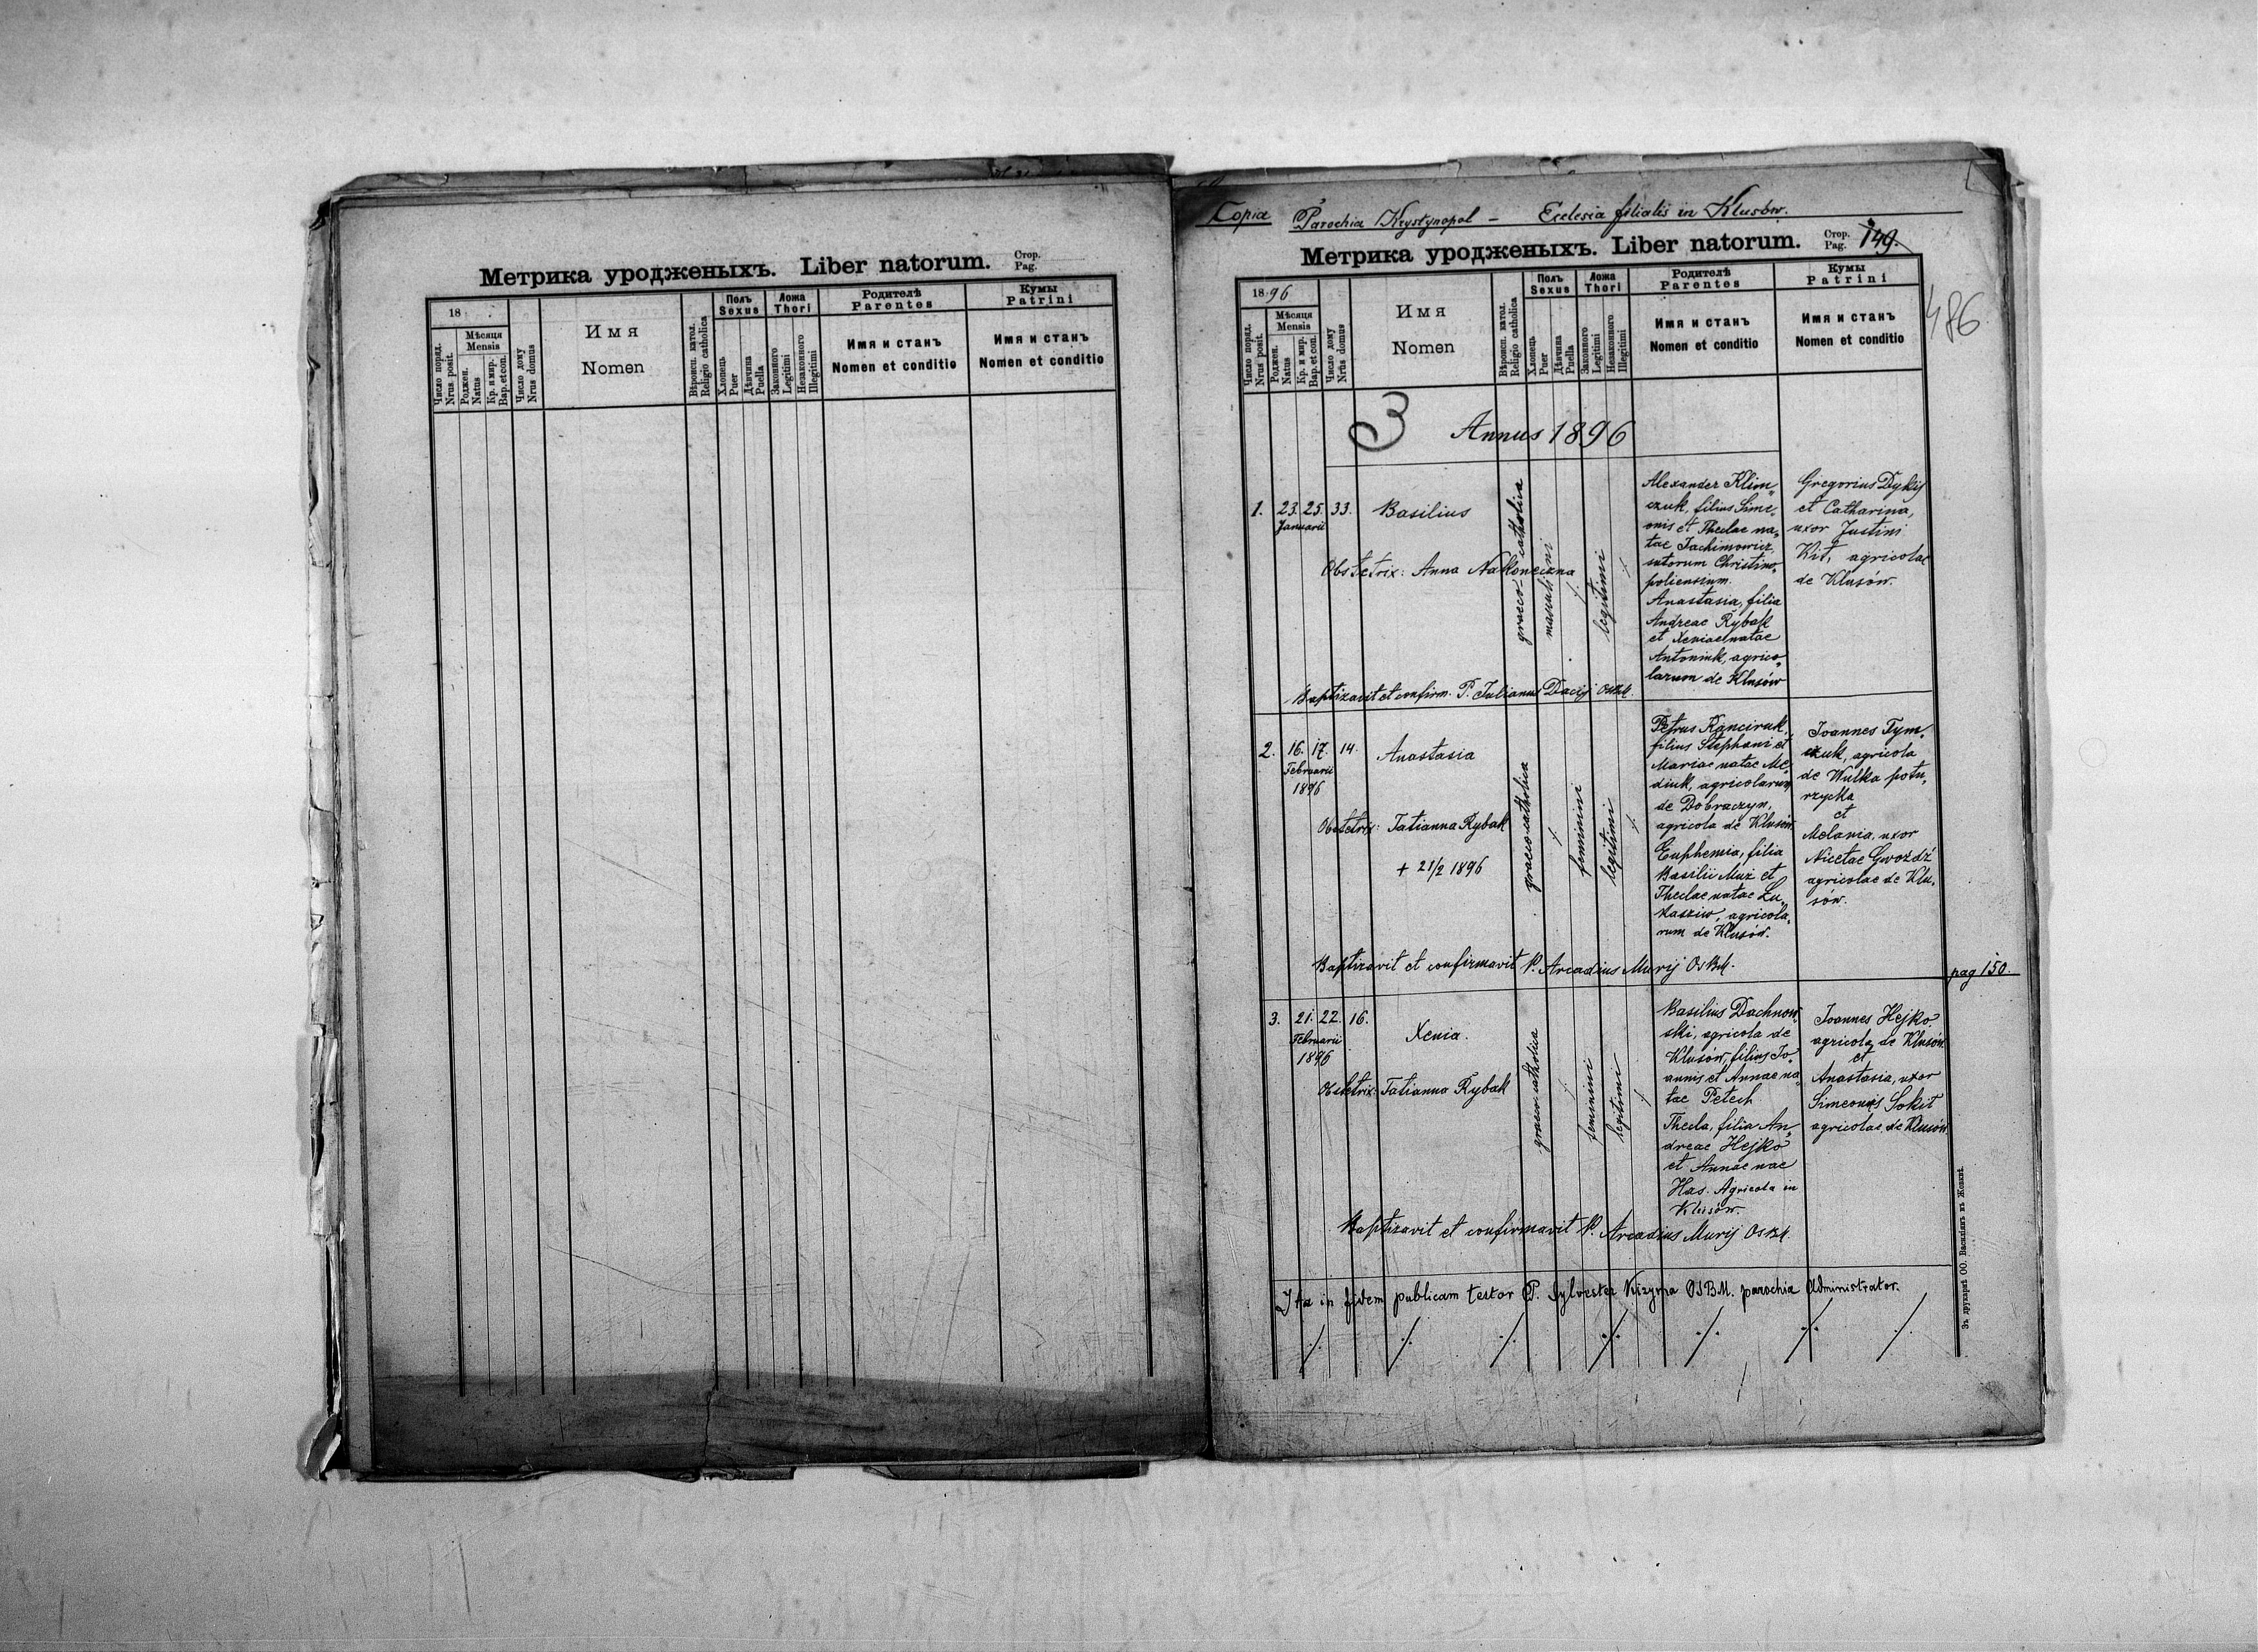 Метрика уродженыхъ. Liber natorum. Стор. Pag.
18
Число поряд. Nrus. posit.
Мѣсяця Mensis
Роджен. Natus
Кр. и мир. Bap. et con.
Число дому Nrus domus
Имя
Nomen
Вѣроисп. катол. Religio catholica
Полъ Sexus
Хлопець Puer
Дѣвчина Puella
Ложа Thori
Законного Legitimi
Незаконного Illegitimi
Родителѣ Parentes
Имя и станъ
Nomen et conditio
Кумы Patrini
Имя и станъ
Nomen et conditio
Copia Parochia Krystynopol – Ecclesia filialis in Klusów.
Метрика уродженыхъ. Liber natorum. Стор. Pag. 149.
486
1896
Число поряд. Nrus. posit.
Мѣсяця Mensis
Роджен. Natus
Кр. и мир. Bap. et con.
Число дому Nrus domus
Имя
Nomen
Вѣроисп. катол. Religio catholica
Полъ Sexus
Хлопець Puer
Дѣвчина Puella
Ложа Thori
Законного Legitimi
Незаконного Illegitimi
Родителѣ Parentes
Имя и станъ
Nomen et conditio
Кумы Patrini
Имя и станъ
Nomen et conditio
3 Annus 1896
1. 23. 25. 33. Basilius
Januarii
Obstetrix: Anna Nakoneczna
graeco-catholica
masculini
legitimi
Alexander Klim„
czuk, filius Sime„
onis et Theclae na„
tae Jachimowicz,
sutorum Christino„
poliensium.
Anastasia, filia
Andreae Rybak
et Xeniae natae
Antoniuk, agrico„
larum de Klusów
Gregorius Dykij
et Catharina,
uxor Justini
Kit, agricolae
de Klusów.
Baptizavit et confirm. P. Julianus Dacij OSBM.
2. 16. 17. 14. Anastasia
Februarii
1896
Obstetrix: Tatianna Rybak
+ 21/2 1896
graeco catholica
feminini
legitimi
Petrus Kanciruk,
filius Stephani et
Mariae natae Me„
diuk, agricolarum
de Dobraczyn,
agricola de Klusów
Euphemia, filia
Basilii Muz et
Theclae natae Lu„
kasziw, agricola„
rum de Klusów.
Joannes Tym„
czuk, agricola
de Wulka potu„
rzycka
et
Melania, uxor
Nicetae Gwoźdź
agricolae de Klu„
sów.
Baptizavit et confirmavit P. Arcadius Murij OSBM.
pag 150.
3. 21. 22. 16. Xenia.
Februarii
1896
Obstetrix: Tatianna Rybak
graeco catholica
feminini
legitimi
Basilius Dachnow„
ski, agricola de
Klusów, filius Jo„
annis et Annae na„
tae Petech
Thecla, filia An„
dreae Hejko
et Annae nae
Has. Agricola in
Klusów.
Joannes Hejko
agricola de Klusów
et
Anastasia, uxor
Simeonis Sokit
agricolae de Klusów.
Baptizavit et confirmavit P. Arcadius Murij OSBM.
Ita in fidem publicam testor P. Sylvester Kizyma OSBM. parochia Administrator.
Зъ друкарнѣ ОО. Василіянъ въ Жовквѣ.